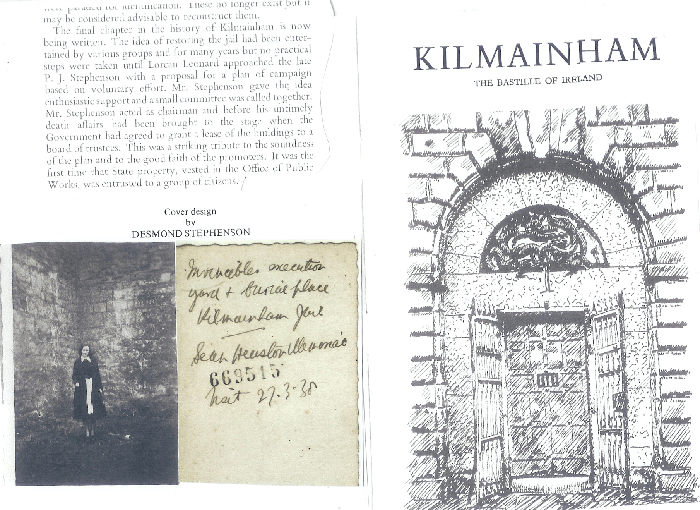 may be considered advisable to reconstruct them.
The final chapter in the history of Kilmainham is now
being written. The idea of restoring the jail had been enter-
tained by various groups and for many years but no practical
steps were taken until Lorcan Leonard approached the late
P. J. Stephenson with a proposal for a plan of campaign
based on voluntary effort. Mr. Stephenson gave the idea
enthusiastic support and a small committee was called together.
Mr. Stephenson acted as chairman and before his untimely
death affairs had been brought to the stage when the
Government had agreed to grant a lease of the buildings to a
board of trustees. This was a striking tribute to the soundness
of the plan and to the good faith of the promoters. It was the
first time that State property, vested in the Office of Public
Works, was entrusted to a group of citizens.
Cover design
by
DESMOND STEPHENSON
Invincibles execution
yard + burial place
Kilmainham Jail
Sean Heuston Memorial
669515
Visit 27-3-38
KILMAINHAM
THE BASTILLE OF IRELAND